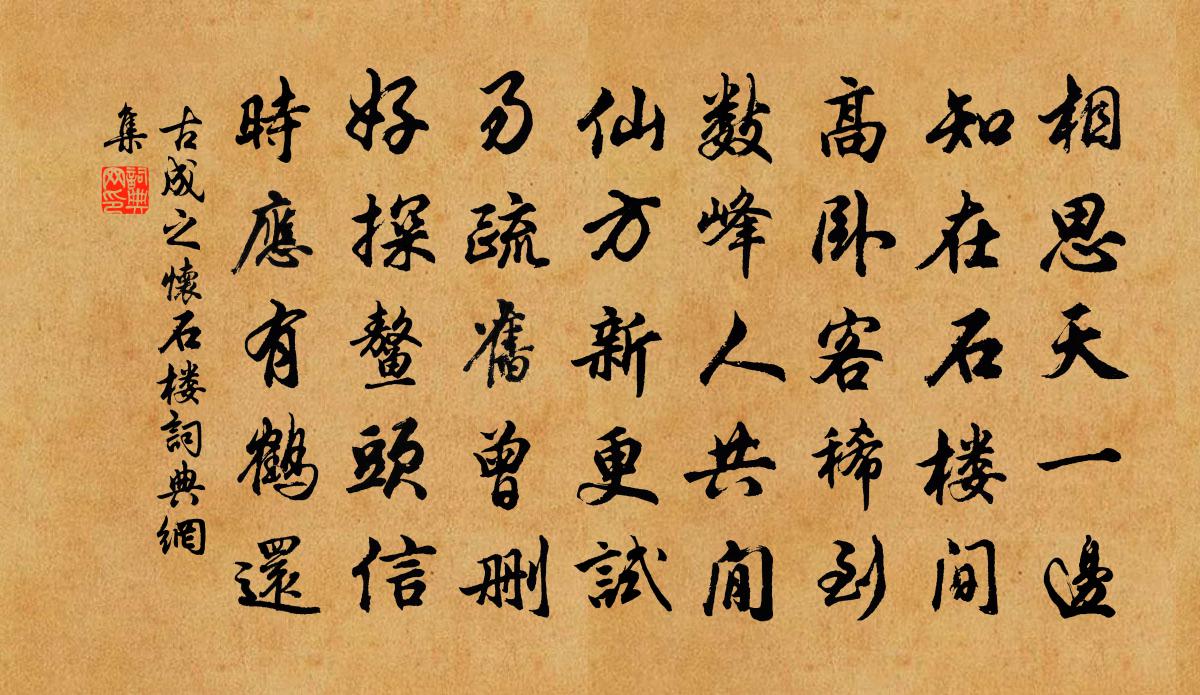 相思天一邊
知在石楼間
高卧客稀到
數峰人共閒
仙方新更試
易疏舊曾刪
好探鼇頭信
時應有鶴還
古成之懷石楼詞典網
集
詞典網印